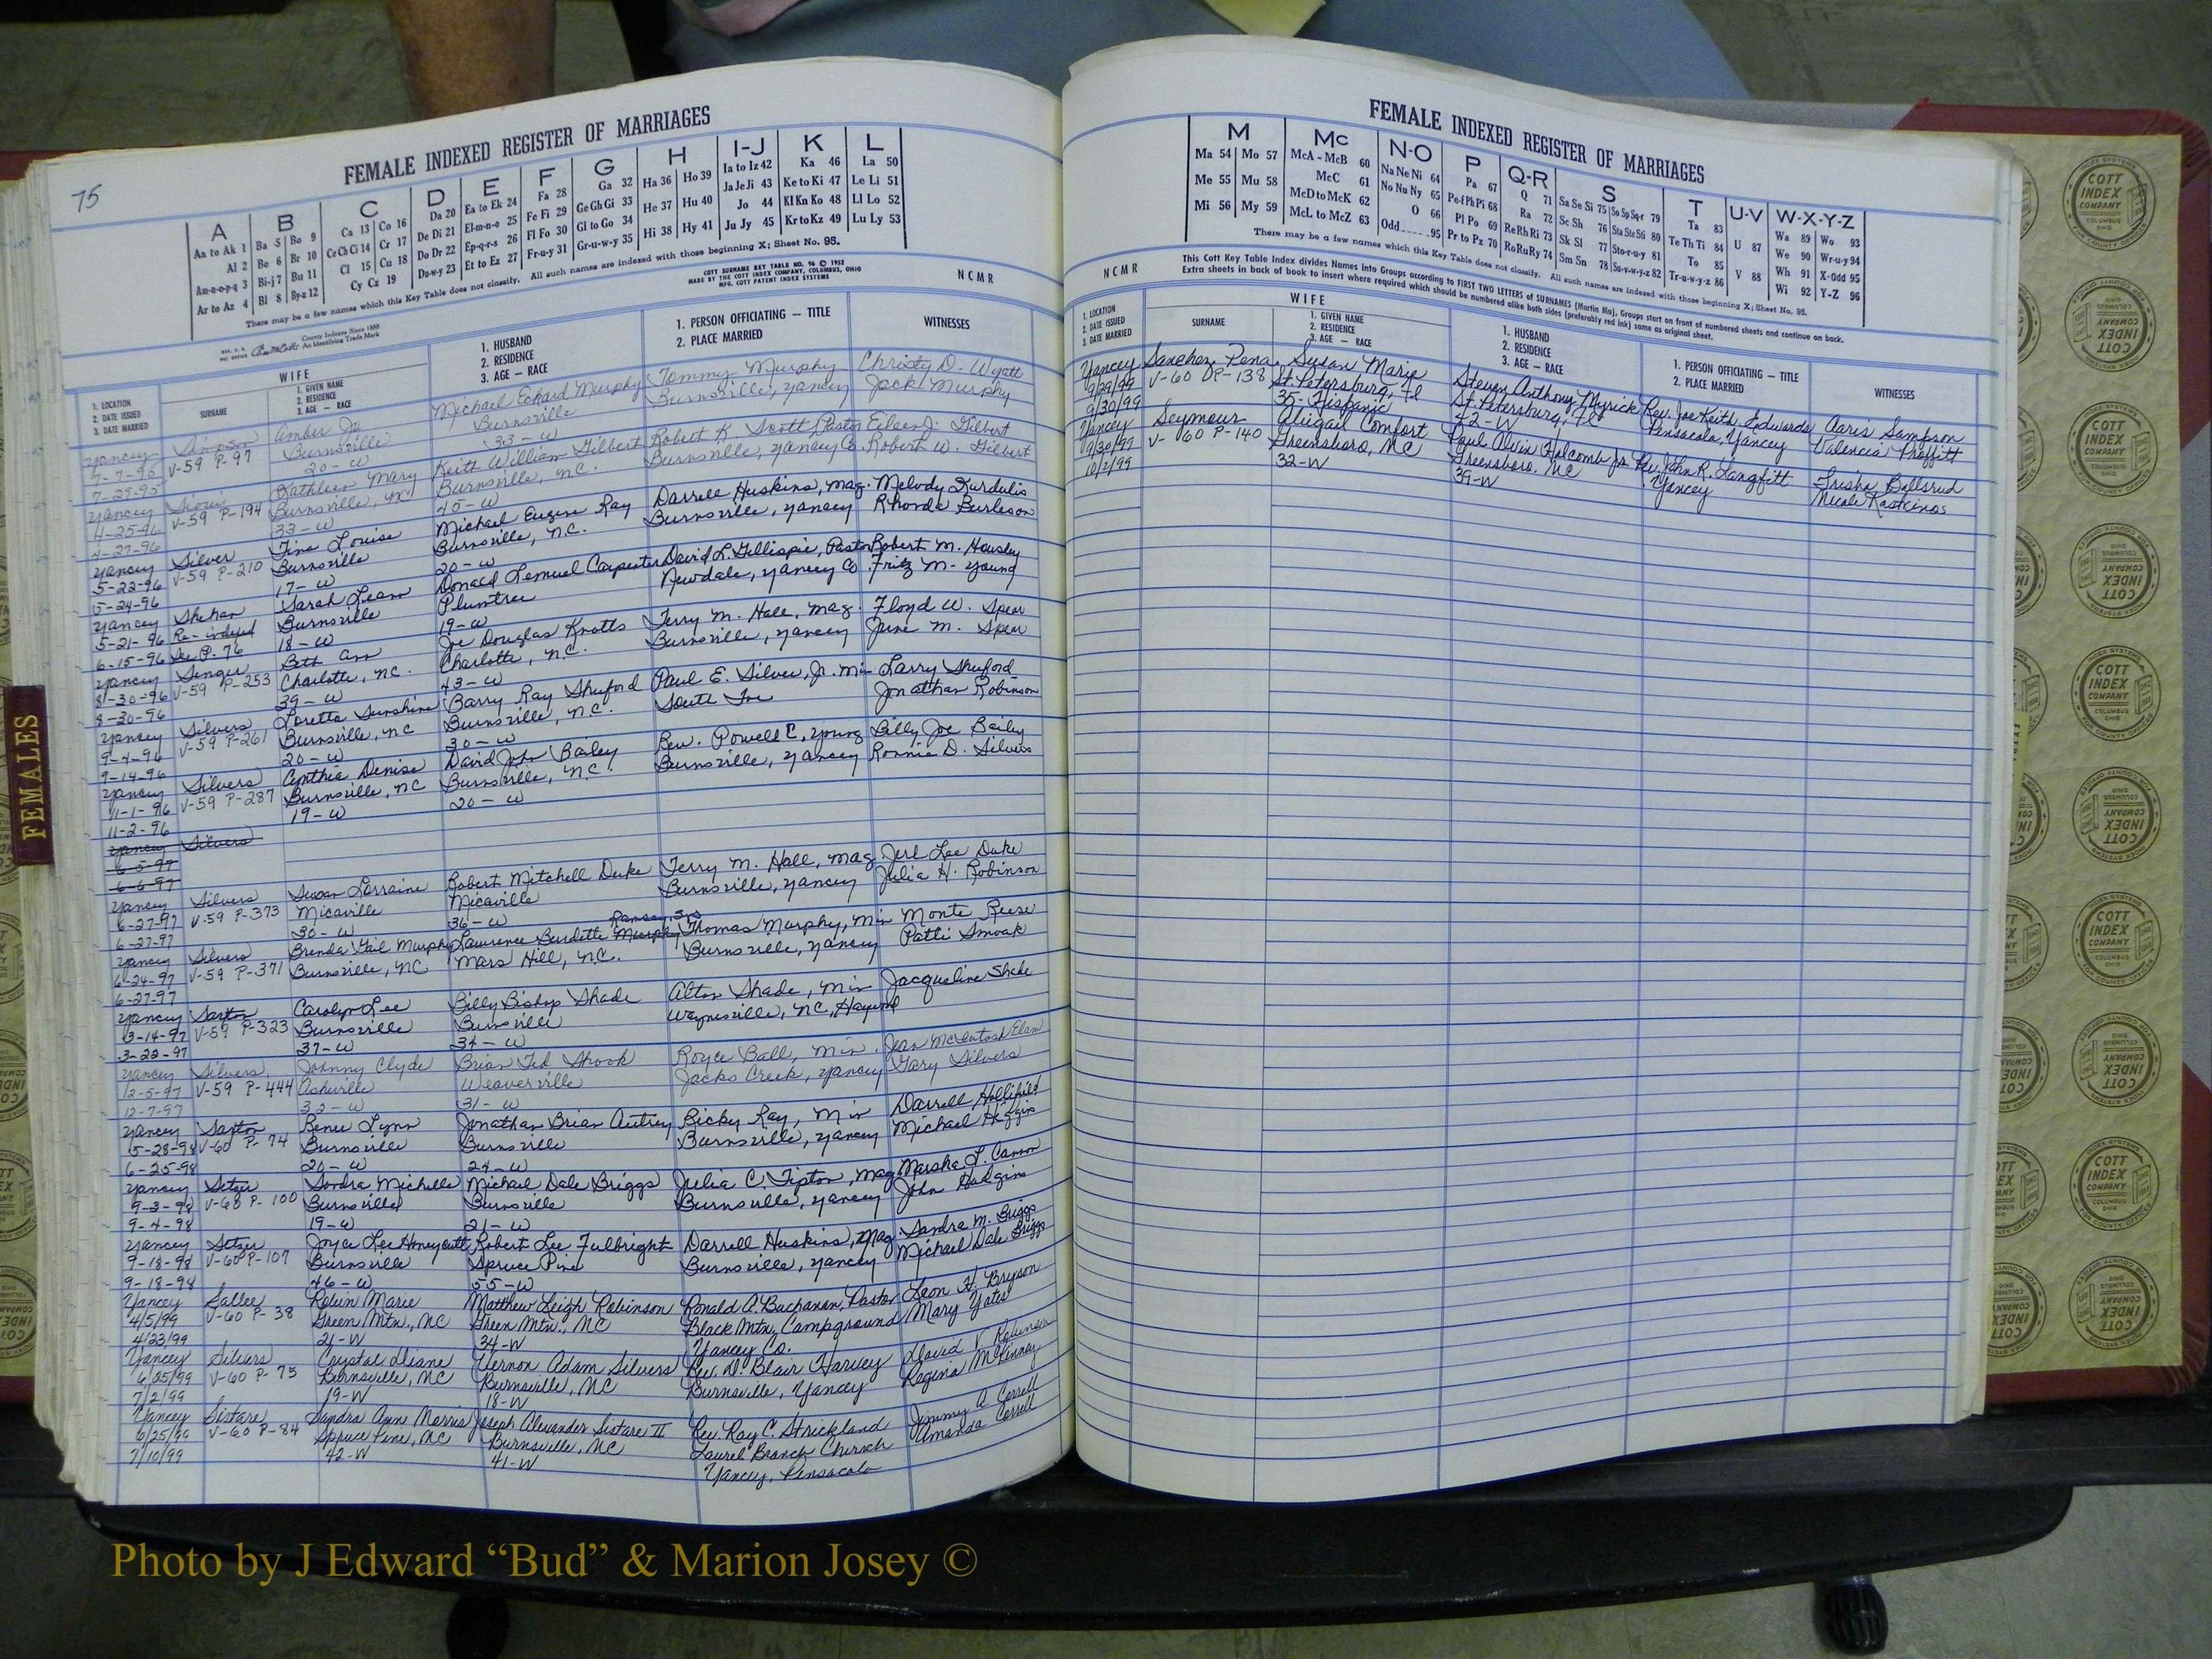 75
FEMALE INDEXED REGISTER OF MARRIAGES
A B C D E F G H I-J K L
Aa to Ak 1 Ba 5 Bo 9 Ca 13 Co 16 Da 20 Ea to Ek 24 Fa 28 Ga 32 Ha 36 Ho 39 Ia to Iz 42 Ka 46 La 50
Al 2 Be 6 Br 10 Ce Ch Ci 14 Cr 17 De Di 21 El-m-n-o 25 Fe Fi 29 Ge Gh Gi 33 He 37 Hu 40 Ja Je Ji 43 Ke to Ki 47 Le Li 51
Am-n-o-p-q 3 Bi-j 7 Bu 11 Cl 15 Cu 18 Do Dr 22 Ep-q-r-s 26 Fl Fo 30 Gl to Go 34 Hi 38 Hy 41 Jo 44 Kl Kn Ko 48 Ll Lo 52
Ar to Az 4 Bl 8 By-z 12 Cy Cz 19 Du-w-y 23 Et to Ez 27 Fr-u-y 31 Gr-u-w-y 35 Ju Jy 45 Kr to Kz 49 Lu Ly 53
There may be a few names which this Key Table does not classify. All such names are indexed with those beginning X; Sheet No. 95.
County Indexes Since 1888
An Identifying Trade Mark
COTT SURNAME KEY TABLE NO. 96 © 1952
MADE BY THE COTT INDEX COMPANY, COLUMBUS, OHIO
MFG. COTT PATENT INDEX SYSTEMS
NCMR
1. LOCATION
2. DATE ISSUED
3. DATE MARRIED
WIFE
SURNAME
1. GIVEN NAME
2. RESIDENCE
3. AGE — RACE
1. HUSBAND
2. RESIDENCE
3. AGE — RACE
1. PERSON OFFICIATING — TITLE
2. PLACE MARRIED
WITNESSES
Yancey Simpson Amber Jo Michael Eckard Murphy Tommy Murphy Christy D. Wyatt
7-7-95 V-59 P-97 Burnsville Burnsville Burnsville, Yancey Jack Murphy
7-29-95 20-W 33-W
Yancey Kathleen Mary Keith William Gilbert Robert K Scott, Pastor Eileen J. Gilbert
4-25-96 V-59 P-194 Burnsville, NC Burnsville, N.C. Burnsville, Yancey Co. Robert W. Gilbert
4-27-96 33-W 45-W
Yancey Silver Tina Louise Michael Eugene Ray Darrell Huskins, Mag. Melody Kurdulis
5-22-96 V-59 P-210 Burnsville Burnsville, N.C. Burnsville, Yancey Rhonda Burleson
5-24-96 17-W 20-W
Yancey Shehan Sarah Leann Donald Lemuel Carpenter David L. Gillispie, Pastor Robert M. Housley
5-21-96 Re-indexed Burnsville Plumtree Newdale, Yancey Co. Fritz M. Young
6-15-96 See P-76 18-W 19-W
Yancey Singer Beth Ann Joe Douglas Knotts Terry M. Hall, Mag. Floyd W. Spear
8-30-96 V-59 P-253 Charlotte, N.C. Charlotte, N.C. Burnsville, Yancey June M. Spear
8-30-96 39-W 43-W
Yancey Silvers Loretta Sunshine Barry Ray Shuford Paul E. Silver, Jr. Min Larry Shuford
9-4-96 V-59 P-261 Burnsville, NC Burnsville, N.C. South Toe Jonathan Robinson
9-14-96 20-W 30-W
Yancey Silvers Cynthia Denise David John Bailey Rev. Powell C. Young Billy Joe Bailey
11-1-96 V-59 P-287 Burnsville, NC Burnsville, N.C. Burnsville, Yancey Ronnie D. Silvers
11-2-96 19-W 20-W
Yancey Silvers
6-5-97
6-6-97
Yancey Silvers Susan Lorraine Robert Mitchell Duke Terry M. Hall, Mag Jerl Lee Duke
6-27-97 V-59 P-373 Micaville Micaville Burnsville, Yancey Julia H. Robinson
6-27-97 30-W 36-W
Yancey Silvers Brenda Gail Murphy Lawrence Burdette Murphy Ramsey, Sr. Thomas Murphy, Min Monte Reese
6-24-97 V-59 P-371 Burnsville, NC Mars Hill, N.C. Burnsville, Yancey Patti Smoak
6-27-97
Yancey Saxton Carolyn Lee Billy Bishop Shade Alton Shade, Min Jacqueline Shade
3-14-97 V-59 P-323 Burnsville Burnsville Waynesville, NC, Haywood
3-22-97 37-W 34-W
Yancey Silvers Johnny Clyde Brian Ted Shook Royce Ball, Min. Jean McIntosh Elam
12-5-97 V-59 P-444 Asheville Weaverville Jacks Creek, Yancey Gary Silvers
12-7-97 32-W 31-W
Yancey Saxton Renee Lynn Jonathan Brian Autrey Ricky Ray, Min Darrell Hollifield
5-28-98 V-60 P-74 Burnsville Burnsville Burnsville, Yancey Michael Higgins
6-25-98 20-W 24-W
Yancey Setzer Sondra Michelle Michael Dale Briggs Julia C. Tipton, Mag Marsha L. Cannon
9-3-98 V-60 P-100 Burnsville Burnsville Burnsville, Yancey John Hudgins
9-4-98 19-W 21-W
Yancey Setzer Joyce Lee Honeycutt Robert Lee Fulbright Darrell Huskins, Mag. Sandra M. Briggs
9-18-98 V-60 P-107 Burnsville Spruce Pine Burnsville, Yancey Michael Dale Briggs
9-18-98 46-W 55-W
Yancey Sallee Robin Marie Matthew Leigh Robinson Ronald A. Buchanan, Pastor Leon H. Bryson
4/5/99 V-60 P-38 Green Mtn., NC Green Mtn., NC Black Mtn. Campground Mary Yates
4/23/99 21-W 34-W Yancey Co.
Yancey Silvers Crystal Diane Vernon Adam Silvers Rev. D. Blair Harvey David V. Robinson
6/25/99 V-60 P-75 Burnsville, NC Burnsville, NC Burnsville, Yancey Regina McKinney
7/2/99 19-W 18-W
Yancey Sistare Sandra Ann Morris Joseph Alexander Sistare II Rev. Ray C. Strickland Jimmy A. Correll
6/25/99 V-60 P-84 Spruce Pine, NC Burnsville, NC Laurel Branch Church Amanda Correll
7/10/99 42-W 41-W Yancey, Pensacola
FEMALE INDEXED REGISTER OF MARRIAGES
M Mc N-O P Q-R S T U-V W-X-Y-Z
Ma 54 Mo 57 McA - McB 60 Na Ne Ni 64 Pa 67 Q 71 Sa Se Si 75 So Sp Sq-r 79 Ta 83 U 87 Wa 89 Wo 93
Me 55 Mu 58 McC 61 No Nu Ny 65 Pe-f Ph Pi 68 Ra 72 Sc Sh 76 Sta Ste Sti 80 Te Th Ti 84 V 88 We 90 Wr-u-y 94
Mi 56 My 59 McD to McK 62 O 66 Pl Po 69 Re Rh Ri 73 Sk Sl 77 Sto-r-u-y 81 To 85 Wh 91 X-Odd 95
McL to McZ 63 Odd 95 Pr to Pz 70 Ro Ru Ry 74 Sm Sn 78 Su-v-w-y-z 82 Tr-u-w-y-z 86 Wi 92 Y-Z 96
There may be a few names which this Key Table does not classify. All such names are indexed with those beginning X; Sheet No. 95.
NCMR
This Cott Key Table Index divides Names into Groups according to FIRST TWO LETTERS of SURNAMES (Martin Ma), Groups start on front of numbered sheets and continue on back.
Extra sheets in back of book to insert where required which should be numbered alike both sides (preferably red ink) same as original sheet.
1. LOCATION
2. DATE ISSUED
3. DATE MARRIED
WIFE
SURNAME
1. GIVEN NAME
2. RESIDENCE
3. AGE — RACE
1. HUSBAND
2. RESIDENCE
3. AGE — RACE
1. PERSON OFFICIATING — TITLE
2. PLACE MARRIED
WITNESSES
Yancey Sanchez Pena Susan Marie Steven Anthony Myrick Rev. Joe Keith Edwards Aaris Sampson
9/29/99 V-60 P-138 St. Petersburg, Fl St. Petersburg, Fl Pensacola, Yancey Valencia Proffitt
9/30/99 35-Hispanic 42-W
Yancey Seymour Abigail Comfort Paul Alvin Holcomb Jr. Rev. John R. Langfitt Trisha Ballsrud
9/30/99 V-60 P-140 Greensboro, NC Greensboro, NC Yancey Nicole
10/2/99 32-W 39-W
FEMALES
COTT INDEX COMPANY COLUMBUS OHIO
Photo by J Edward “Bud” & Marion Josey ©